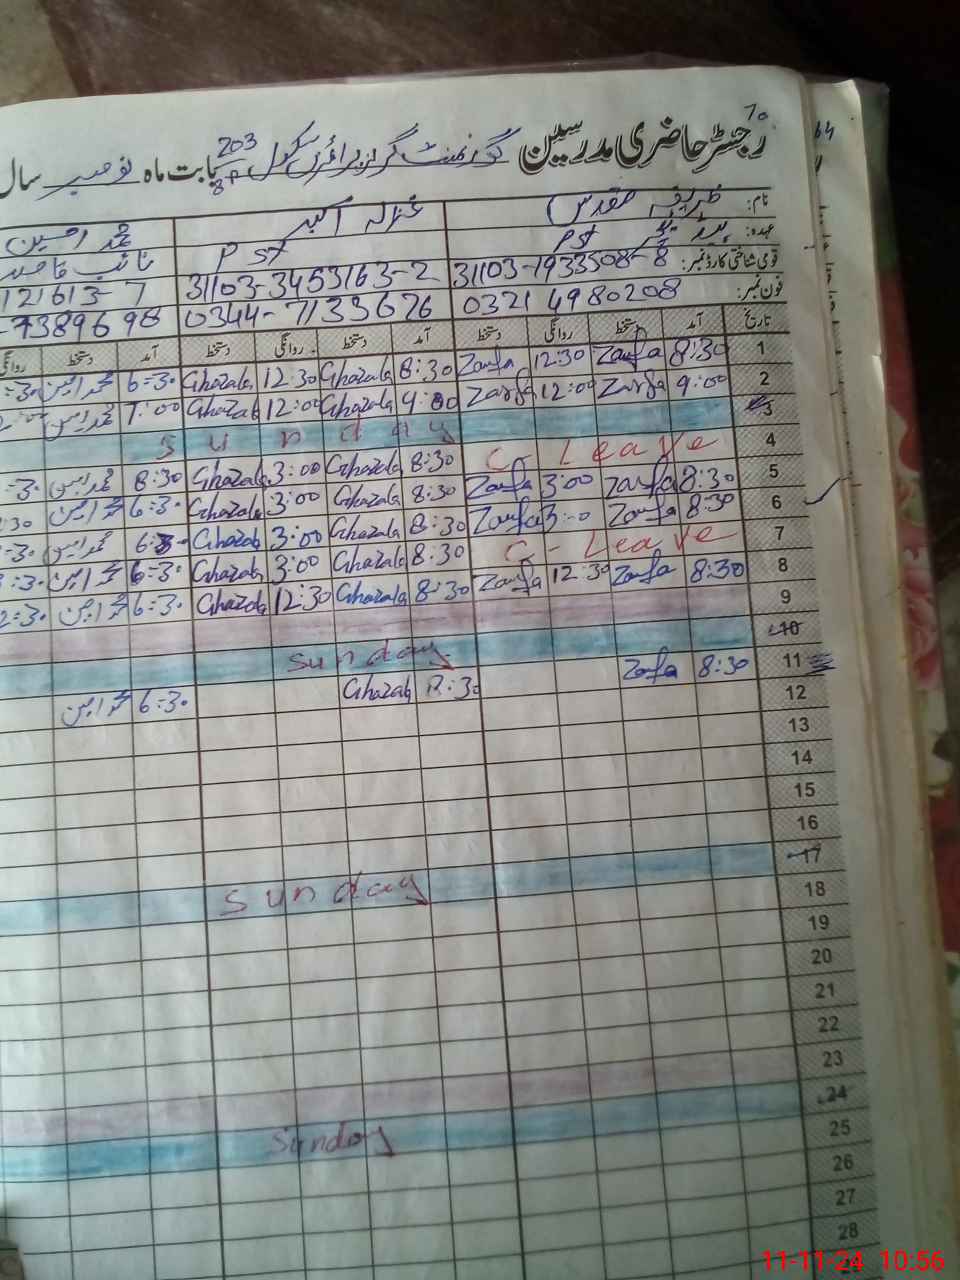 70
رجسٹر حاضری مدرسین گورنمنٹ گرلز پرائمری سکول 203 بابت ماہ نومبر سال
64
نام: ظریفہ مقدس غزالہ اکبر محمد امین
عہدہ: PST PST نائب قاصد
قومی شناختی کارڈ نمبر: 31103-1933508-8 31103-3453163-2 121613-7
فون نمبر: 0321 4980208 0344-7133676 7389698
تاریخ آمد دستخط روانگی دستخط آمد دستخط روانگی دستخط آمد دستخط روانگی
1 8:30 Zarfa 12:30 Zarfa 8:30 Ghazala 12:30 Ghazala 6:30 محمد امین
2 9:00 Zarfa 12:00 Zarfa 9:00 Ghazala 12:00 Ghazala 7:00 محمد امین
3 Sunday
4 C-Leave 8:30 Ghazala 3:00 Ghazala 8:30 محمد امین
5 8:30 Zarfa 3:00 Zarfa 8:30 Ghazala 3:00 Ghazala 6:30 محمد امین
6 8:30 Zarfa 3:00 Zarfa 8:30 Ghazala 3:00 Ghazala 6:30 محمد امین
7 C-Leave 8:30 Ghazala 3:00 Ghazala 6:30 محمد امین
8 8:30 Zarfa 12:30 Zarfa 8:30 Ghazala 12:30 Ghazala 6:30 محمد امین
9
10 Sunday
11 8:30 Zarfa Ghazala 6:30 محمد امین
12
13
14
15
16
17 Sunday
18
19
20
21
22
23
24 Sunday
25
26
27
28
11-11-24 10:56